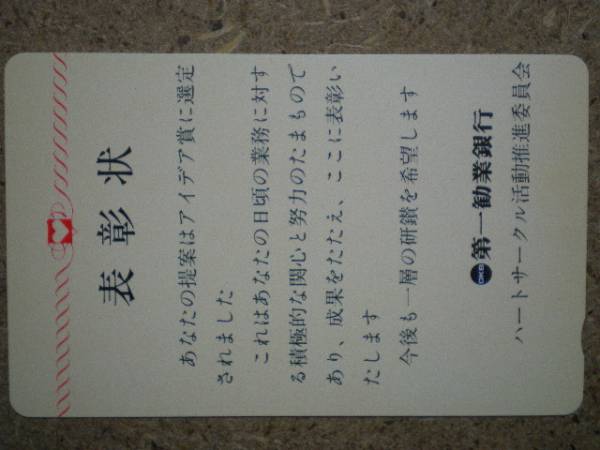 表彰状
あなたの提案はアイデア賞に選定
されました
これはあなたの日頃の業務に対す
る積極的な関心と努力のたまもので
あり、成果をたたえ、ここに表彰い
たします
今後も一層の研鑚を希望します
DKB 第一勧業銀行
ハートサークル活動推進委員会